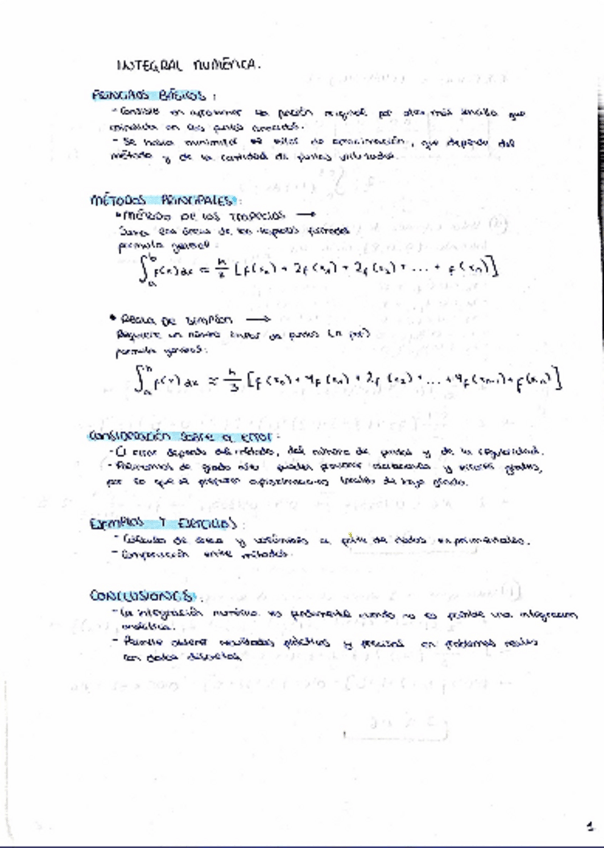 INTEGRAL NUMÉRICA.
PRINCIPIOS BÁSICOS:
- Consiste en aproximar la función original por otra más sencilla que
coincida en los puntos conocidos.
- Se busca minimizar el error de aproximación, que depende del
método y de la cantidad de puntos utilizados.
MÉTODOS PRINCIPALES:
• MÉTODO DE LOS TRAPECIOS →
Suma las áreas de los trapecios formados
formula general:
∫ₐᵇ f(x) dx ≈ h/2 [f(x₀) + 2f(x₁) + 2f(x₂) + ... + f(xₙ)]
• REGLA DE SIMPSON →
Requiere un número de puntos (n par)
formula general:
∫ₐᵇ f(x) dx ≈ h/3 [f(x₀) + 4f(x₁) + 2f(x₂) + ... + 4f(xₙ₋₁) + f(xₙ)]
Consideración sobre el error:
- El error depende del método, del número de puntos y de la regularidad.
- Polinomios de grado alto pueden provocar oscilaciones y errores grandes,
por lo que se prefieren aproximaciones locales de bajo grado.
EJEMPLOS Y EJERCICIOS:
- Cálculos de áreas y a partir de datos experimentales.
- Comparación entre métodos.
CONCLUSIONES:
- La integración numérica es fundamental cuando no es posible una integración
analítica.
- Permite obtener resultados prácticos y precisos en problemas reales
con datos discretos.
1